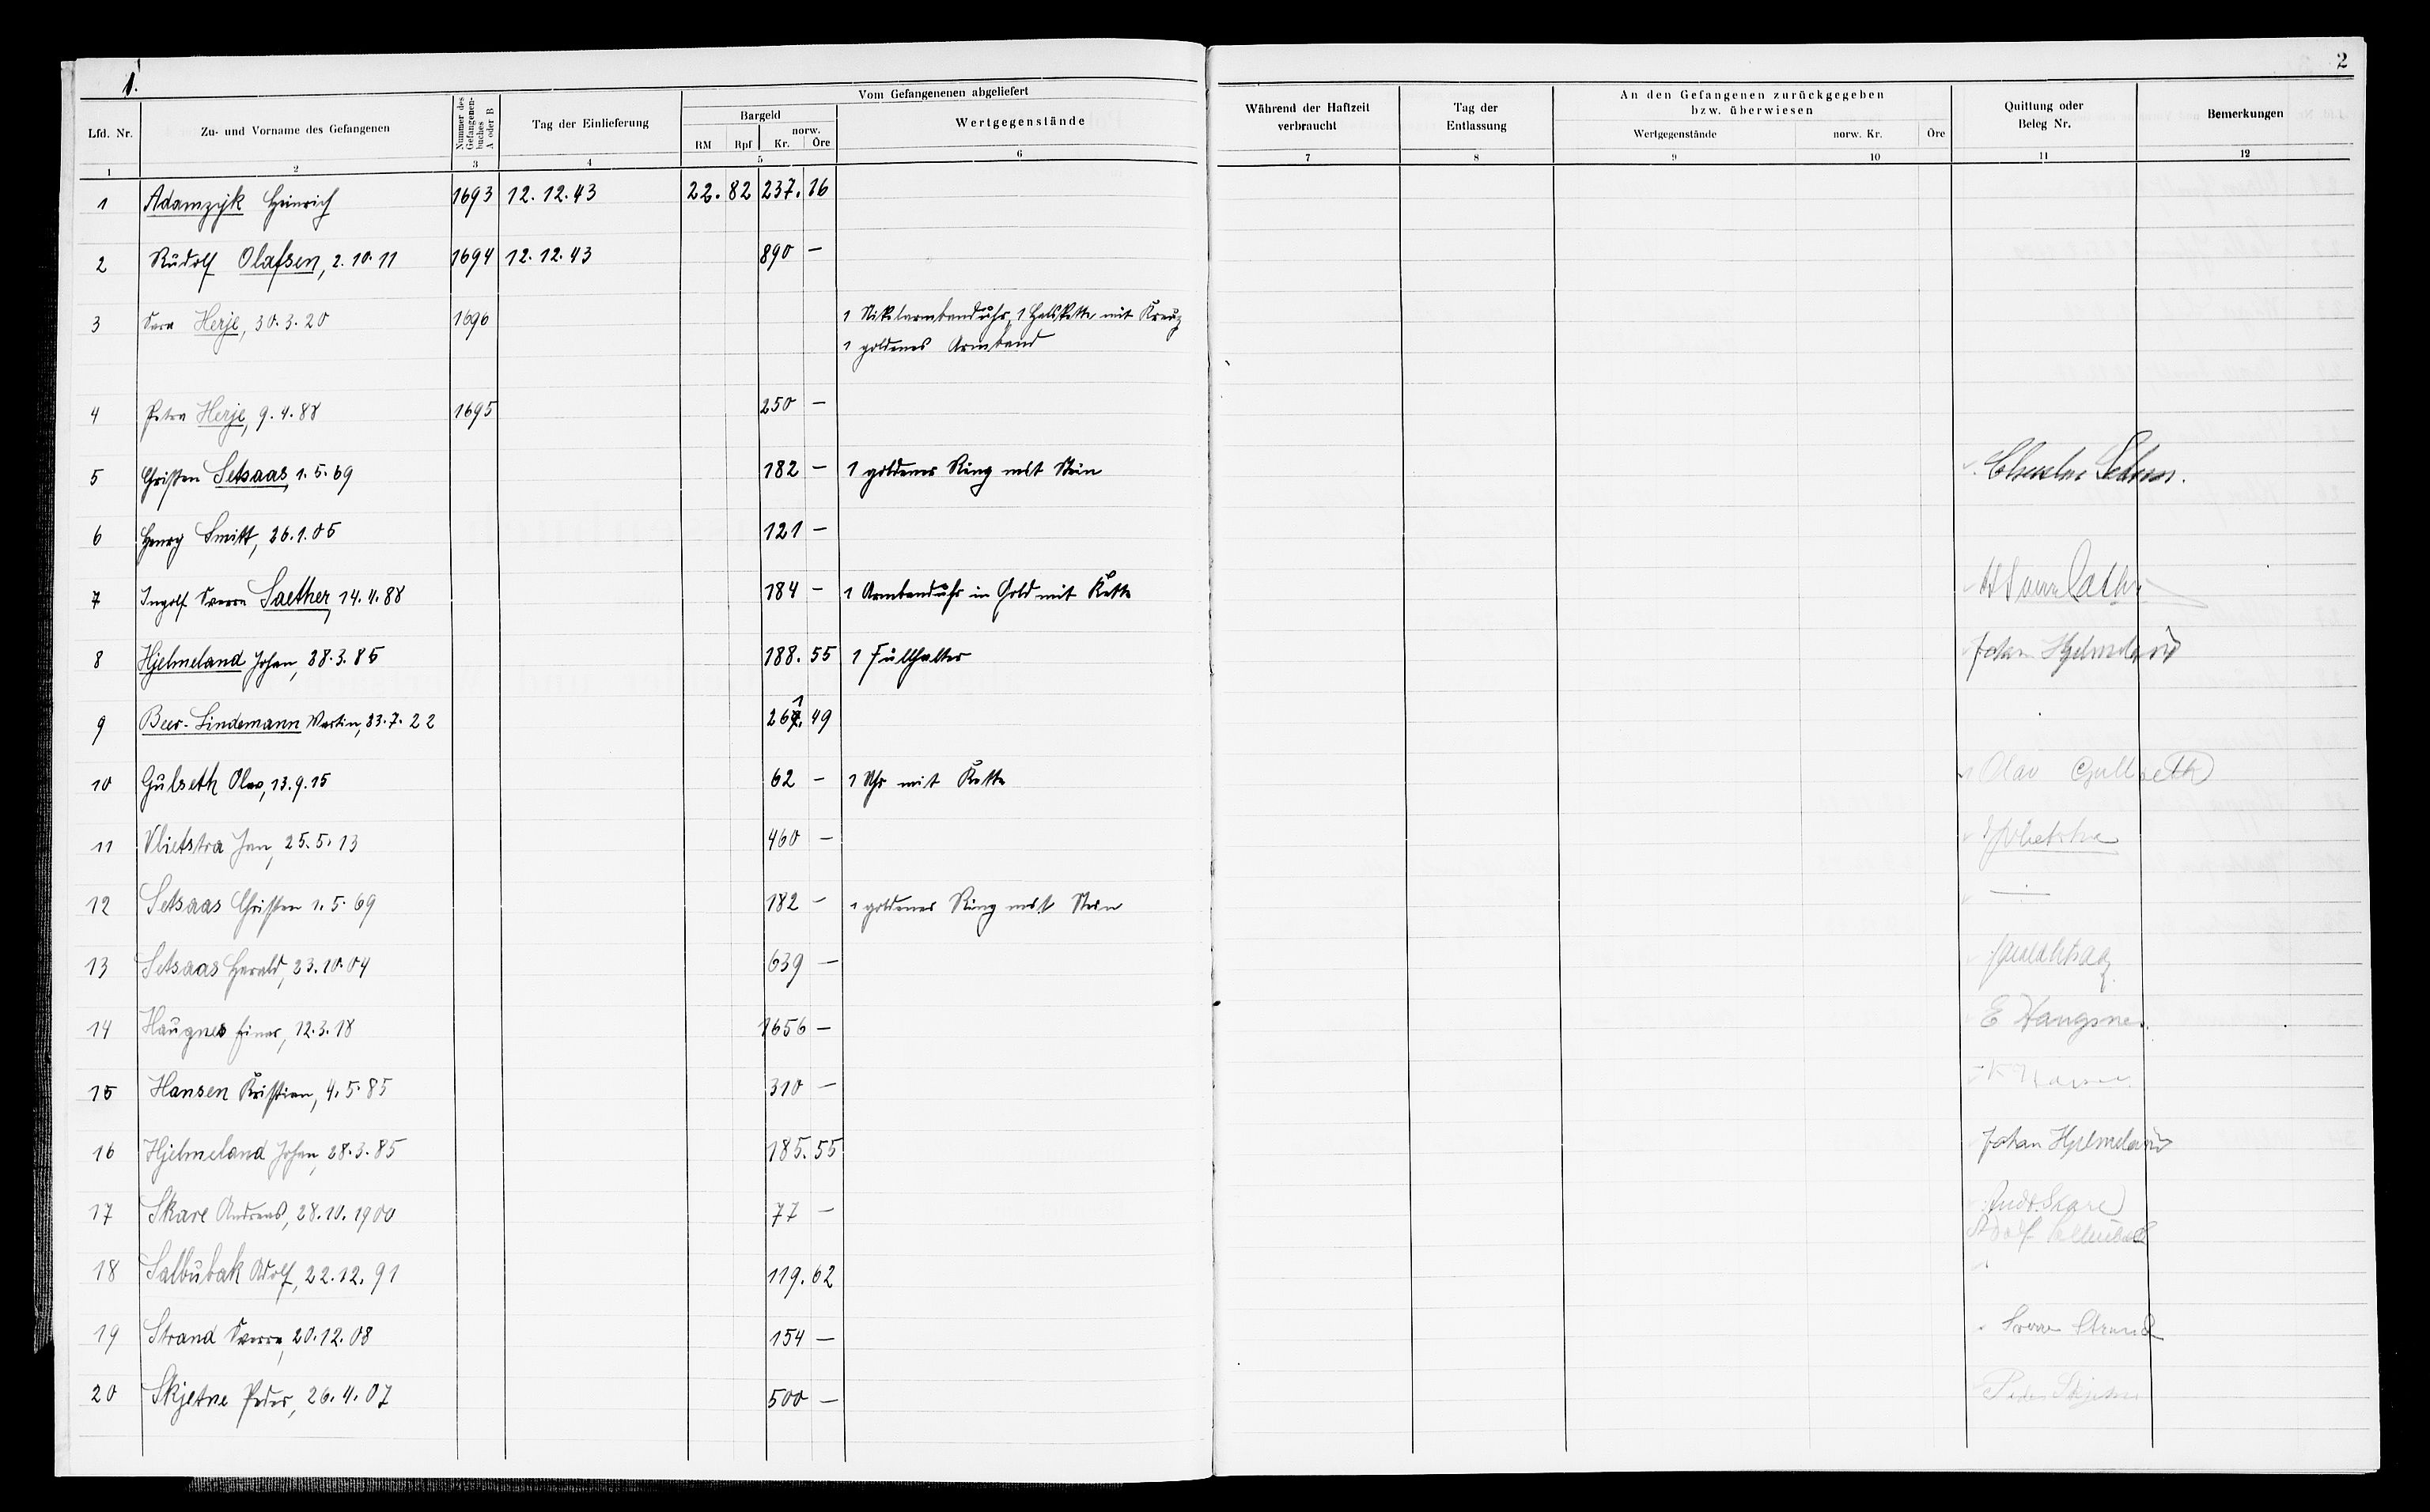 1.
2
Lfd. Nr. Zu- und Vorname des Gefangenen Nummer des Gefangenen-buches A oder B Tag der Einlieferung Vom Gefangenenen abgeliefert
Bargeld Wertgegenstände
RM Rpf norw. Kr. Öre
Während der Haftzeit verbraucht Tag der Entlassung An den Gefangenen zurückgegeben bzw. überwiesen
Wertgegenstände norw. Kr. Öre
Quittung oder Beleg Nr. Bemerkungen
1 2 3 4 5 6 7 8 9 10 11 12
1 Adamzyk Heinrich 1693 12.12.43 22.82 237.16
2 Rudolf Olafsen, 2.10.11 1694 12.12.43 890 —
3 Herje, 30.3.20 1696 1 Nikelarmbanduhr, 1 Halskette mit Kreuz
1 goldenes Armband
4 Petra Herje, 9.4.88 1695 250 —
5 Christen Setsaas, 1.5.69 182 — 1 goldener Ring mit Stein
6 Henry Smitt, 26.1.05 121 —
7 Ingolf Sverre Saether, 14.4.88 184 — 1 Armbanduhr in Gold mit Kette
8 Hjelmeland Johan, 28.3.85 188.55 1 Füllhalter Johan Hjelmeland
9 Beer-Lindemann Martin, 23.7.22 261.49
10 Gulseth Olav, 13.9.15 62 — 1 Uhr mit Kette Olav Gullseth
11 Vlietstra Jan, 25.5.13 460 — Vlietstra
12 Setsaas Christen 1.5.69 182 — 1 goldener Ring mit Stein —
13 Setsaas Harald, 23.10.04 639 —
14 Haugnes Einar, 12.3.18 1656 — E Haugsnes
15 Hansen Kristian, 4.5.85 310 —
16 Hjelmeland Johan, 28.3.85 185.55 Johan Hjelmeland
17 Skare Andreas, 28.10.1900 77 — Andr. Skare
18 Salbubak Adolf, 22.12.91 119.62 Adolf
19 Strand Sverre, 20.12.08 154 — Sverre Strand
20 Skjetne Peder, 26.4.07 500 — Peder Skjetne